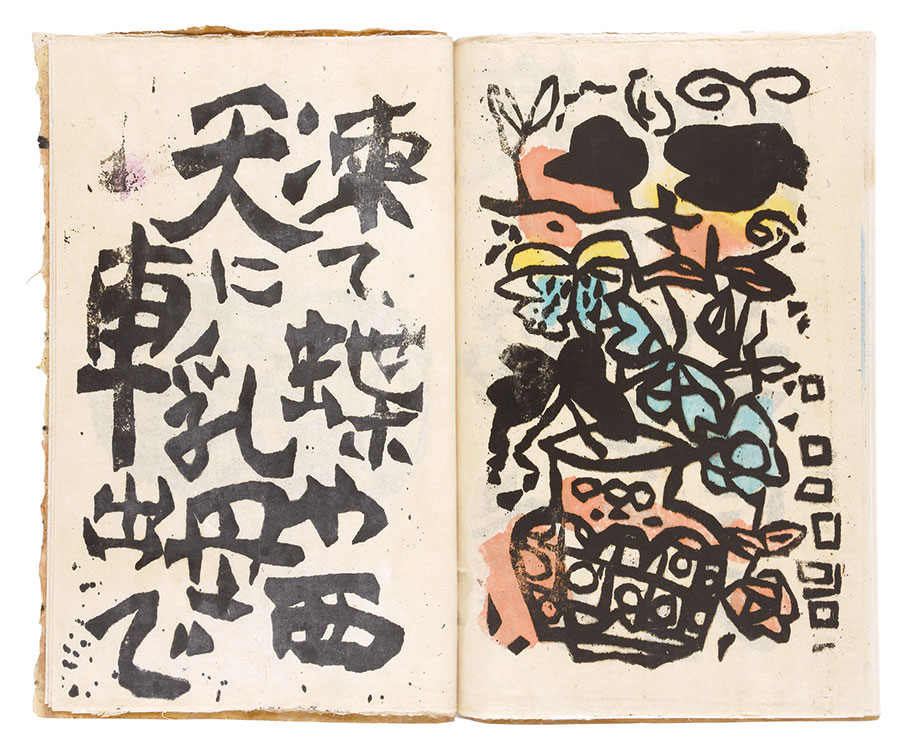 凍て蝶や西
天に乳母
車出で